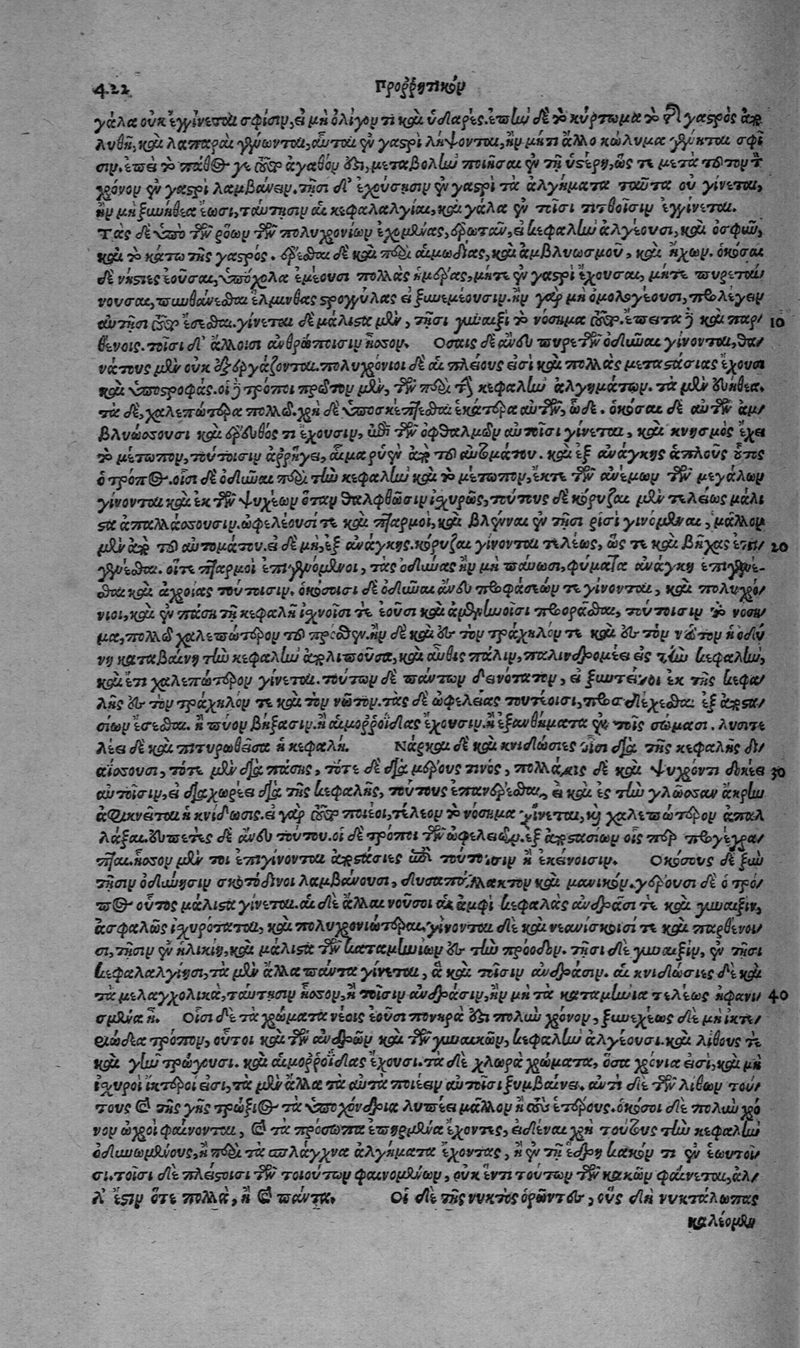 422 Προῤῥητικόν
γάλα οὐκ ἐγγίνεται σφίσιν, εἰ μὴ ὀλίγον τι καὶ ὑδαρές. ἐπὴν δὲ τὸ κύρτωμα τὸ τῆς γαστρὸς ἀπο
λυθῇ, καὶ λαπαραὶ γένωνται, αὗται ἐν γαστρὶ λήψονται, ἢν μή τι ἄλλο κώλυμα γένηται σφί
σιν. ἐπεὶ τὸ πάθος γε τοῦτο ἀγαθόν ἐστι, μεταβολὴν ποιῆσαι ἐν τῇ ὑστέρῃ, ὥς τε μετὰ τοῦτον τὸν
χρόνον ἐν γαστρὶ λαμβάνειν. τῇσι δ' ἐχούσῃσιν ἐν γαστρὶ τὰ ἀλγήματα ταῦτα οὐ γίνεται,
ἢν μὴ ξυνήθεα ἔωσι, ταύτῃσιν αἱ κεφαλαλγίαι, καὶ γάλα ἐν τοῖσι τιτθοῖσιν ἐγγίνεται.
Τὰς δὲ ὑπὸ τῶν ῥόων τῶν πολυχρονίων ἐχομένας, ἐρωτᾶν, εἰ κεφαλὴν ἀλγέουσι, καὶ ὀσφῦν,
καὶ τὸ κάτω τῆς γαστρός. ἐρέσθαι δὲ καὶ περὶ αἱμωδίας, καὶ ἀμβλυωσμοῦ, καὶ ἤχων. ὁκόσαι
δὲ νήστιες ἐοῦσαι, ὑπόχολα ἐμέουσι πολλὰς ἡμέρας, μήτε ἐν γαστρὶ ἔχουσαι, μήτε πυρεταί
νουσαι, πυνθάνεσθαι ἕλμινθας στρογγύλας εἰ ξυνεμέουσιν. ἢν γὰρ μὴ ὁμολογέουσι, προλέγειν
αὐτῇσι τοῦτο ἔσεσθαι. γίνεται δὲ μάλιστα μὲν, τῇσι γυναιξὶ τὸ νόσημα τοῦτο. ἔπειτα δὲ καὶ παρ 10
θένοις. τοῖσι δ' ἄλλοισι ἀνθρώποισιν ἧσσον. Ὅσαις δὲ ἄνευ πυρετῶν ὀδῦναι γίνονται, θα
νάτους μὲν οὐκ ἐξεργάζονται. πολυχρόνιοι δὲ αἱ πλείους εἰσὶ καὶ πολλὰς μεταστάσιας ἔχουσι
καὶ ὑποστροφάς. οἱ δὲ τρόποι πρῶτον μὲν, τῶν περὶ τὴν κεφαλὴν ἀλγημάτων. τὰ μὲν εὐήθεα.
τὰ δὲ, χαλεπώτερα πολλῷ. χρὴ δὲ ὑποσκέπτεσθαι ἑκάτερα αὐτῶν, ὧδε. ὁκόσαι δὲ αὐτῶν ἀμ
βλυώσσουσι καὶ ἔρευθός τι ἔχουσιν, ἐπὶ τῶν ὀφθαλμῶν αὐτοῖσι γίνεται, καὶ κνησμὸς ἔχει
τὸ μέτωπον, τούτοισιν ἀρήγει, αἷμα ῥυὲν ἀπὸ ταὐτομάτου. καὶ ἐξ ἀνάγκης ἁπλοῦς οὗτος
ὁ τρόπος. οἷσι δὲ ὀδῦναι περὶ τὴν κεφαλὴν καὶ τὸ μέτωπον, ἔκ τε τῶν ἀνέμων τῶν μεγάλων
γίνονται καὶ ἐκ τῶν ψυχέων ὅταν θαλφθῶσιν ἰσχυρῶς, τούτους δὲ κόρυζαι μὲν τελείως μάλι
στα ἀπαλλάσσουσιν. ὠφελέουσί τε καὶ πταρμοὶ, καὶ βλένναι ἐν τῇσι ῥισὶ γινόμεναι, μάλλον
μὲν ἀπὸ τοῦ αὐτομάτου. εἰ δὲ μὴ, ἐξ ἀνάγκης. κόρυζαι γίνονται τελέως, ὥς τε καὶ βῆχας ἐπι 20
γενέσθαι. οἵ τε πταρμοὶ ἐπιγενόμενοι, τὰς ὀδύνας ἢν μὴ παύωσι, φύματα ἀνάγκη ἐπιγενέ-
σθαι καὶ ἀχροίας τούτοισιν. ὁκόσοισι δὲ ὀδύναι ἄνευ προφασίων τε γίνονται, καὶ πολυχρό
νιοι, καὶ ἐν πάσῃ τῇ κεφαλῇ ἰσχνοῖσί τε ἐοῦσι καὶ ἀμενηνοῖσι προορᾶσθαι, τούτοισιν τὸ νόση
μα, πολλῷ χαλεπώτερον τοῦ πρόσθεν. ἢν δὲ καὶ ἐς τὸν τράχηλόν τε καὶ ἐς τὸν νῶτον ἡ ὀδύ
νη καταβαίνῃ τὴν κεφαλὴν ἀπολιποῦσα, καὶ αὖθις πάλιν, παλινδρομέει ἐς τὴν κεφαλὴν,
καὶ ἔτι χαλεπώτερον γίνεται. τούτων δὲ πάντων δεινότατον, εἰ ξυντείνοι ἐκ τῆς κεφα
λῆς ἐς τὸν τράχηλον τε καὶ τὸν νῶτον. τὰς δὲ ὠφελείας τουτέοισι, προσδέχεσθαι ἐξ ἀποστα
σίων ἔσεσθαι. ἢ πύον βήξασιν. ἢ αἱμορροΐδας ἔχουσιν. ἢ ἐξανθήματα ἐν τοῖς σώμασι. λυσιτε
λέει δὲ καὶ πιτυρωθεῖσα ἡ κεφαλή. Νάρκαι δὲ καὶ κνιδώσιες οἷσι διὰ τῆς κεφαλῆς δι
αΐσσουσι, τότε μὲν διὰ πάσης, τότε δὲ διὰ μέρους τινὸς, πολλάκις δὲ καὶ ψυχρόν τι δοκέει 30
αὐτοῖσιν, εἰ διαχωρέει διὰ τῆς κεφαλῆς, τούτους ἐπανέρεσθαι, εἰ καὶ ἐς τὴν γλῶσσαν ἄκρην
ἀφικνέεται ἡ κνίδωσις. εἰ γὰρ τοῦτο ποιέοι, τέλεον τὸ νόσημα γίνεται, καὶ χαλεπώτερον ἀπαλ
λάξαι. εὐπετὲς δὲ ἄνευ τούτου. οἱ δὲ τρόποι τῶν ὠφελειῶν. ἐξ ἀποστασίων οἷς περ προγέγρα
πται. ἧσσον μέν τοι ἐπιγίνονται ἀποστάσιες ἐπὶ τούτοισιν ἢ ἐκείνοισιν. Ὁκόσους δὲ ξὺν
τῇσιν ὀδύνῃσιν σκοτόδινοι λαμβάνουσι, δυσαπάλλακτον καὶ μανικόν. γέρουσι δὲ ὁ τρό
πος οὗτος μάλιστα γίνεται. αἱ δὲ ἄλλαι νοῦσοι αἱ ἀμφὶ κεφαλὰς ἀνδράσι τε καὶ γυναιξὶν,
ἀσφαλῶς ἰσχυρόταται, καὶ πολυχρονιώτεραι. γίνονται δὲ καὶ νεανίσκοισί τε καὶ παρθένοι
σι, τῇσιν ἐν ἡλικίῃ, καὶ μάλιστα τῶν καταμηνίων ἐς τὴν πρόοδον. τῇσι δὲ γυναιξὶν, ἐν τῇσι
κεφαλαλγίῃσι, τὰ μὲν ἄλλα πάντα γίνεται, ἃ καὶ τοῖσιν ἀνδράσιν. αἱ κνιδώσιες δὲ καὶ
τὰ μελαγχολικὰ, ταύτῃσιν ἧσσον, ἢ τοῖσιν ἀνδράσιν, ἢν μὴ τὰ καταμήνια τελέως ἠφανι 40
σμένα ᾖ. Οἷσι δὲ τὰ χρώματα νέοις ἐοῦσι πονηρὰ ἐπὶ πολὺν χρόνον, ξυνεχέως δὲ μὴ ἰκτε
ριώδεα τρόπον, οὗτοι καὶ τῶν ἀνδρῶν καὶ τῶν γυναικῶν, κεφαλὴν ἀλγέουσι. καὶ λίθους τε
καὶ γῆν τρώγουσι. καὶ αἱμορροΐδας ἔχουσι. τὰ δὲ χλωρὰ χρώματα, ὅσα χρόνια εἰσὶ, καὶ μὴ
ἰσχυροὶ ἴκτεροι εἰσι, τὰ μὲν ἄλλα τὰ αὐτὰ ποιέειν αὐτοῖσι ξυμβαίνει. ἀντὶ δὲ τῶν λίθων τού
τους καὶ τῆς γῆς τρώξιος τὰ ὑποχόνδρια λυπέει μᾶλλον ἢ τοὺς ἑτέρους. ὁκόσοι δὲ πολὺν χρό
νον ὠχροὶ φαίνονται, καὶ τὰ πρόσωπα ἐπηρμένα ἔχοντες, εἰδέναι χρὴ τούτους τὴν κεφαλὴν
ὀδυνωμένους, ἢ περὶ τὰ σπλάγχνα ἀλγήματα ἔχοντας, ἢ ἐν τῇ ἕδρῃ κακόν τι ἐν ἑωυτοῖ
σι. τοῖσι δὲ πλείστοισι τῶν τοιούτων φαινομένων, οὐκ ἕν τι τούτων τῶν κακῶν φαίνεται, ἀλ
λ' ἔστιν ὅτε πολλὰ, ἢ καὶ πάντα. Οἱ δὲ τῆς νυκτὸς ὁρῶντες, οὓς δὴ νυκτάλωπας
καλέομεν